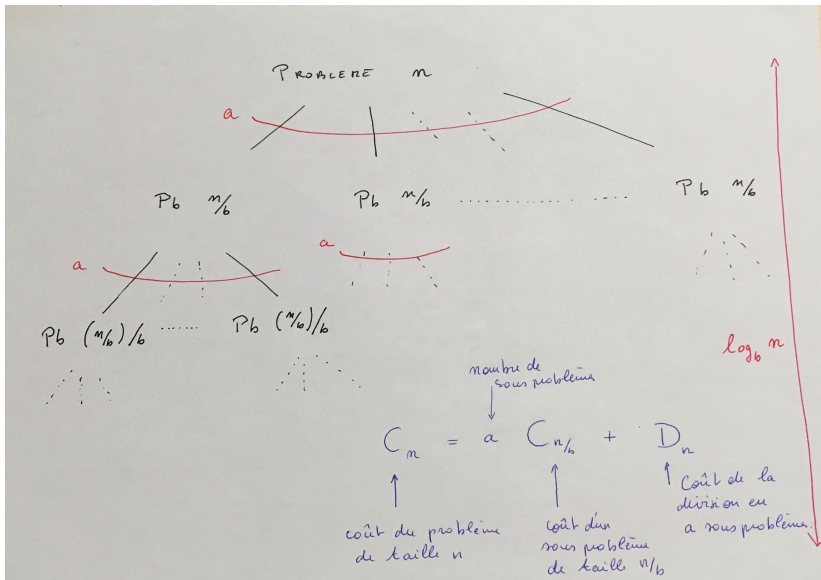 PROBLEME n
a
Pb n/b Pb n/b .................... Pb n/b
a
a
Pb (n/b)/b ...... Pb (n/b)/b
log_b n
nombre de
sous problèmes
C_n = a C_{n/b} + D_n
coût du problème
de taille n
coût d'un
sous problème
de taille n/b
Coût de la
division en
a sous problèmes.